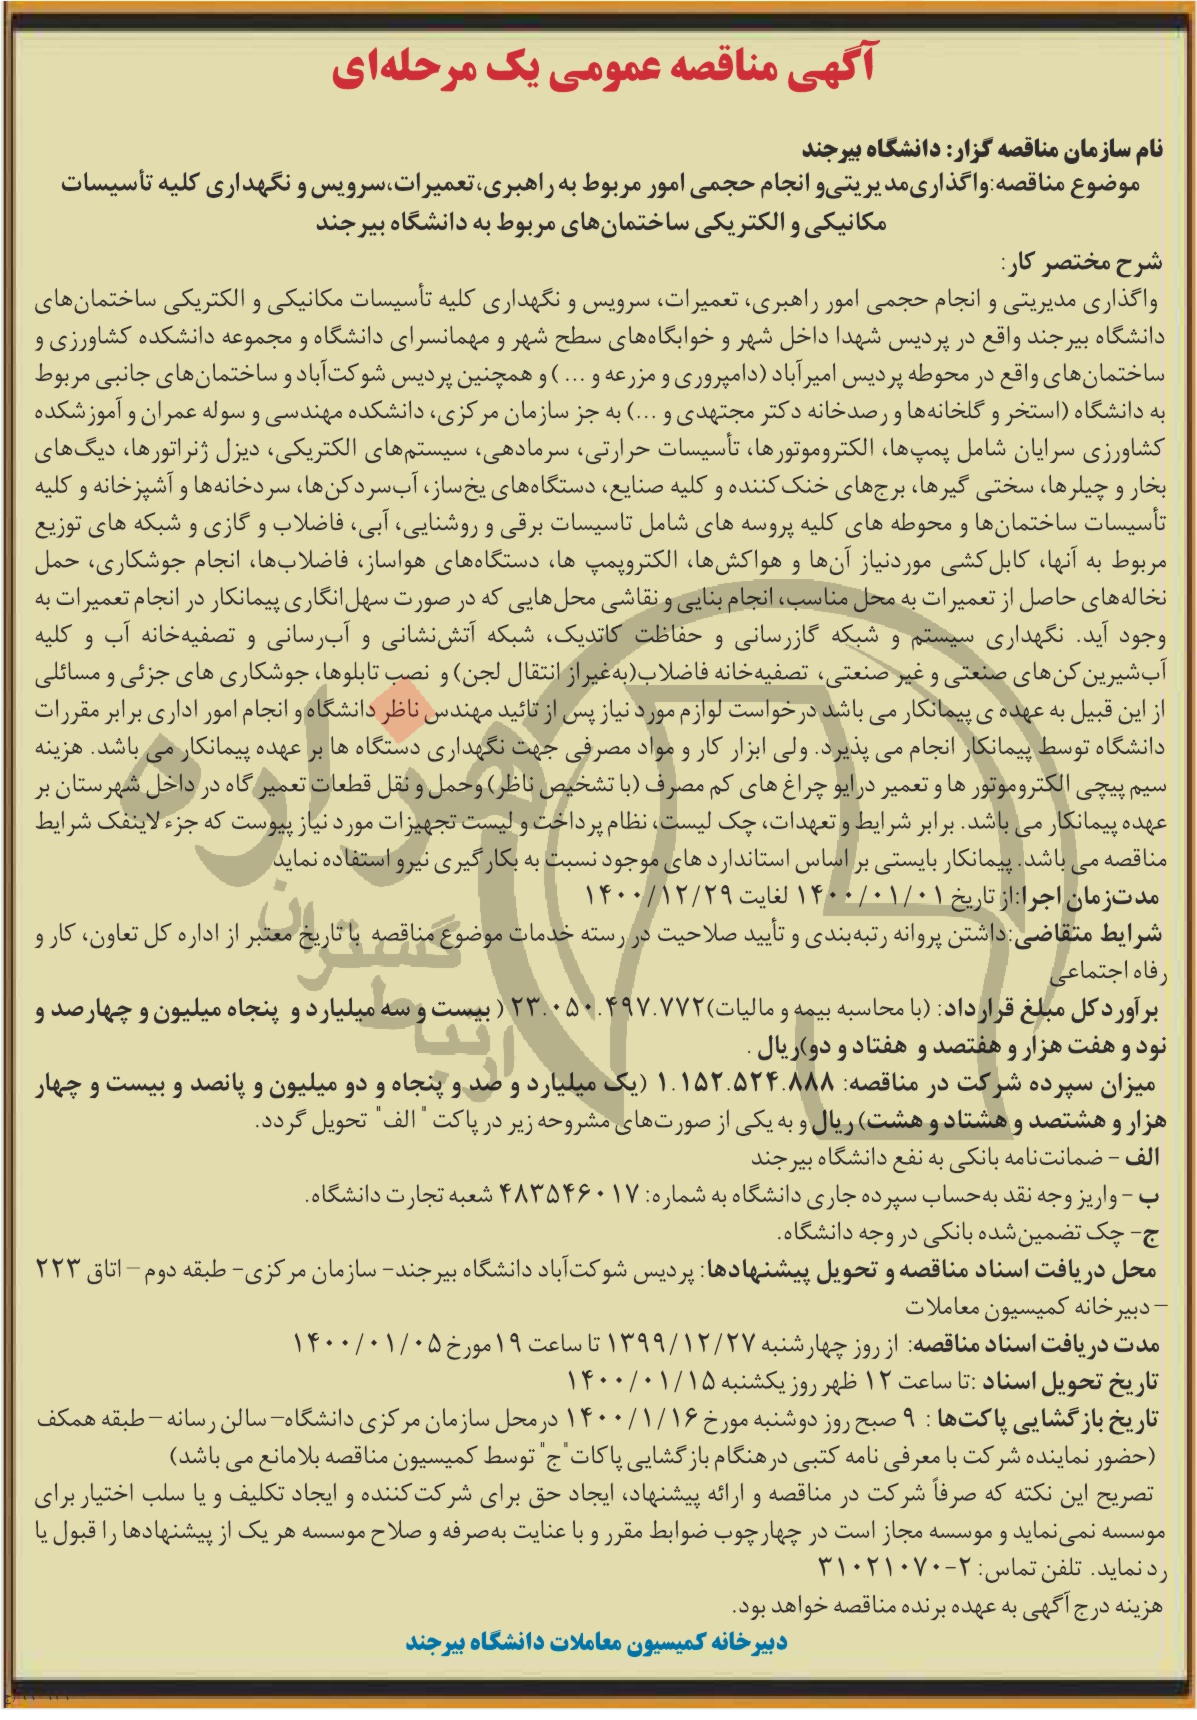 آگهی مناقصه عمومی یک مرحله‌ای
نام سازمان مناقصه گزار: دانشگاه بیرجند
موضوع مناقصه:واگذاری‌مدیریتی‌و انجام حجمی امور مربوط به راهبری،تعمیرات،سرویس و نگهداری کلیه تأسیسات
مکانیکی و الکتریکی ساختمان‌های مربوط به دانشگاه بیرجند
شرح مختصر کار:
واگذاری مدیریتی و انجام حجمی امور راهبری، تعمیرات، سرویس و نگهداری کلیه تأسیسات مکانیکی و الکتریکی ساختمان‌های
دانشگاه بیرجند واقع در پردیس شهدا داخل شهر و خوابگاه‌های سطح شهر و مهمانسرای دانشگاه و مجموعه دانشکده کشاورزی و
ساختمان‌های واقع در محوطه پردیس امیرآباد (دامپروری و مزرعه و ... ) و همچنین پردیس شوکت‌آباد و ساختمان‌های جانبی مربوط
به دانشگاه (استخر و گلخانه‌ها و رصدخانه دکتر مجتهدی و ...) به جز سازمان مرکزی، دانشکده مهندسی و سوله عمران و آموزشکده
کشاورزی سرایان شامل پمپ‌ها، الکتروموتورها، تأسیسات حرارتی، سرمادهی، سیستم‌های الکتریکی، دیزل ژنراتورها، دیگ‌های
بخار و چیلرها، سختی گیرها، برج‌های خنک‌کننده و کلیه صنایع، دستگاه‌های یخ‌ساز، آب‌سردکن‌ها، سردخانه‌ها و آشپزخانه و کلیه
تأسیسات ساختمان‌ها و محوطه های کلیه پروسه های شامل تاسیسات برقی و روشنایی، آبی، فاضلاب و گازی و شبکه های توزیع
مربوط به آنها، کابل‌کشی موردنیاز آن‌ها و هواکش‌ها، الکتروپمپ ها، دستگاه‌های هواساز، فاضلاب‌ها، انجام جوشکاری، حمل
نخاله‌های حاصل از تعمیرات به محل مناسب، انجام بنایی و نقاشی محل‌هایی که در صورت سهل‌انگاری پیمانکار در انجام تعمیرات به
وجود آید. نگهداری سیستم و شبکه گازرسانی و حفاظت کاتدیک، شبکه آتش‌نشانی و آب‌رسانی و تصفیه‌خانه آب و کلیه
آب‌شیرین‌کن‌های صنعتی و غیر صنعتی، تصفیه‌خانه فاضلاب(به‌غیراز انتقال لجن) و نصب تابلوها، جوشکاری های جزئی و مسائلی
از این قبیل به عهده ی پیمانکار می باشد درخواست لوازم مورد نیاز پس از تائید مهندس ناظر دانشگاه و انجام امور اداری برابر مقررات
دانشگاه توسط پیمانکار انجام می پذیرد. ولی ابزار کار و مواد مصرفی جهت نگهداری دستگاه ها بر عهده پیمانکار می باشد. هزینه
سیم پیچی الکتروموتور ها و تعمیر درایو چراغ های کم مصرف (با تشخیص ناظر) وحمل و نقل قطعات تعمیر گاه در داخل شهرستان بر
عهده پیمانکار می باشد. برابر شرایط و تعهدات، چک لیست، نظام پرداخت و لیست تجهیزات مورد نیاز پیوست که جزء لاینفک شرایط
مناقصه می باشد. پیمانکار بایستی بر اساس استاندارد های موجود نسبت به بکارگیری نیرو استفاده نماید
مدت‌زمان اجرا:از تاریخ ۱۴۰۰/۰۱/۰۱ لغایت ۱۴۰۰/۱۲/۲۹
شرایط متقاضی:داشتن پروانه رتبه‌بندی و تأیید صلاحیت در رسته خدمات موضوع مناقصه با تاریخ معتبر از اداره کل تعاون، کار و
رفاه اجتماعی
برآورد کل مبلغ قرارداد: (با محاسبه بیمه و مالیات)۲۳.۰۵۰.۴۹۷.۷۷۲ ( بیست و سه میلیارد و پنجاه میلیون و چهارصد و
نود و هفت هزار و هفتصد و هفتاد و دو)ریال .
میزان سپرده شرکت در مناقصه: ۱.۱۵۲.۵۲۴.۸۸۸ (یک میلیارد و صد و پنجاه و دو میلیون و پانصد و بیست و چهار
هزار و هشتصد و هشتاد و هشت) ریال و به یکی از صورت‌های مشروحه زیر در پاکت " الف" تحویل گردد.
الف – ضمانت‌نامه بانکی به نفع دانشگاه بیرجند
ب – واریز وجه نقد به‌حساب سپرده جاری دانشگاه به شماره: ۴۸۳۵۴۶۰۱۷ شعبه تجارت دانشگاه.
ج– چک تضمین‌شده بانکی در وجه دانشگاه.
محل دریافت اسناد مناقصه و تحویل پیشنهادها: پردیس شوکت‌آباد دانشگاه بیرجند– سازمان مرکزی– طبقه دوم – اتاق ۲۲۳
– دبیرخانه کمیسیون معاملات
مدت دریافت اسناد مناقصه: از روز چهارشنبه ۱۳۹۹/۱۲/۲۷ تا ساعت ۱۹مورخ ۱۴۰۰/۰۱/۰۵
تاریخ تحویل اسناد :تا ساعت ۱۲ ظهر روز یکشنبه ۱۴۰۰/۰۱/۱۵
تاریخ بازگشایی پاکت‌ها : ۹ صبح روز دوشنبه مورخ ۱۴۰۰/۱/۱۶ درمحل سازمان مرکزی دانشگاه– سالن رسانه – طبقه همکف
(حضور نماینده شرکت با معرفی نامه کتبی درهنگام بازگشایی پاکات"ج" توسط کمیسیون مناقصه بلامانع می باشد)
تصریح این نکته که صرفاً شرکت در مناقصه و ارائه پیشنهاد، ایجاد حق برای شرکت‌کننده و ایجاد تکلیف و یا سلب اختیار برای
موسسه نمی‌نماید و موسسه مجاز است در چهارچوب ضوابط مقرر و با عنایت به‌صرفه و صلاح موسسه هر یک از پیشنهادها را قبول یا
رد نماید. تلفن تماس: ۲-۳۱۰۲۱۰۷۰
هزینه درج آگهی به عهده برنده مناقصه خواهد بود.
دبیرخانه کمیسیون معاملات دانشگاه بیرجند
هزاره
گستران